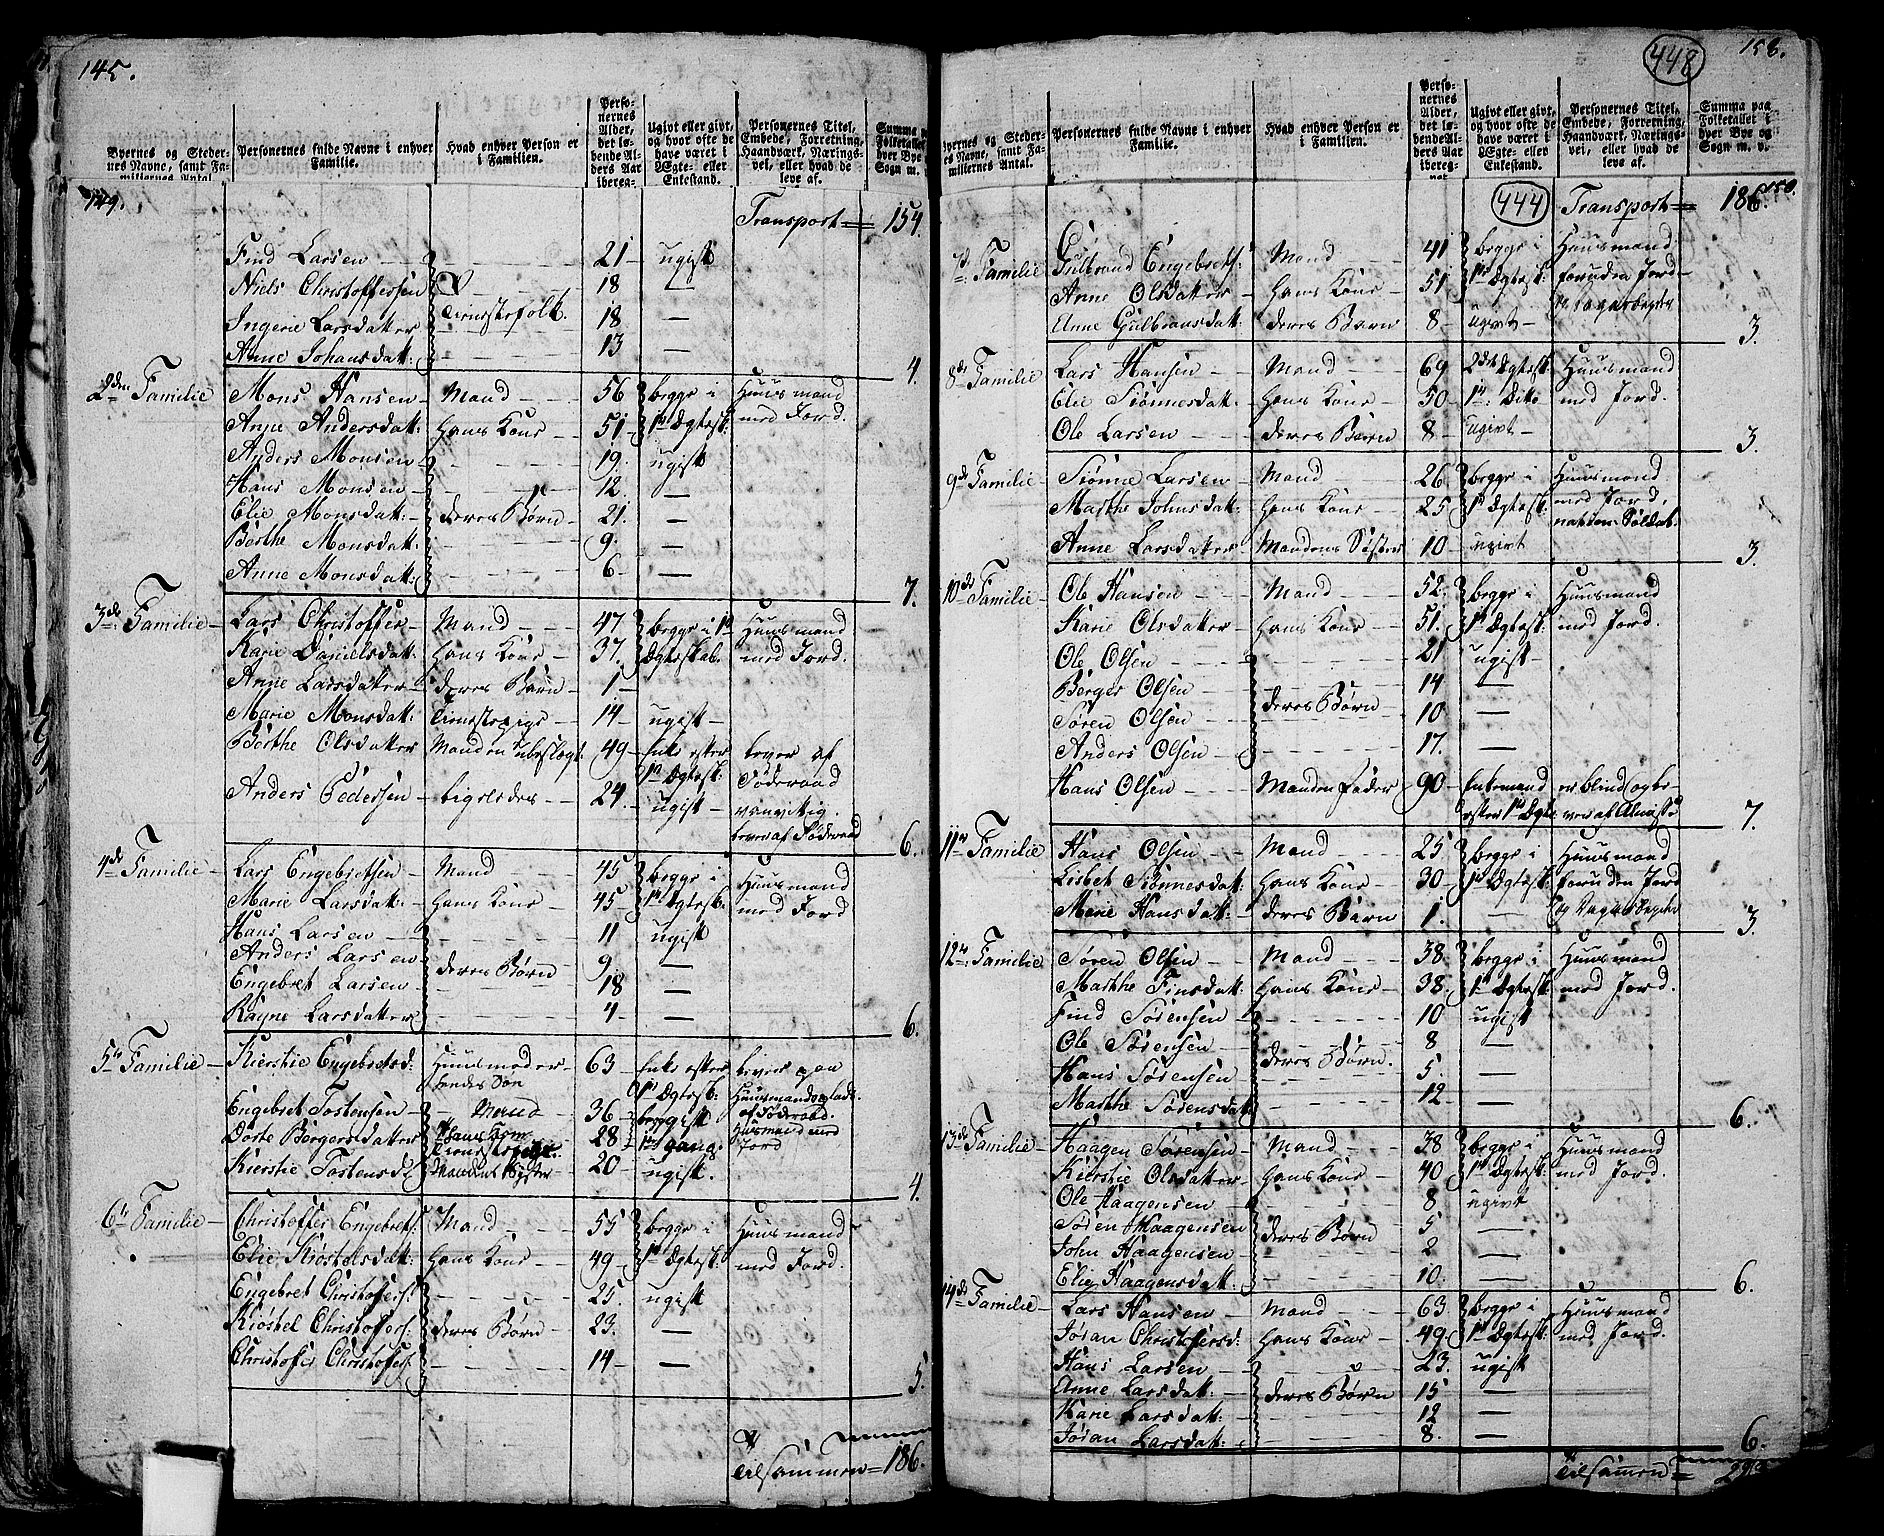 145.
149.
Byernes og Steder-
nes Navne, samt Fa-
miliernes Antal.
Personernes fulde Navne i enhver
Familie.
Hvad enhver Person er
i Familien.
Perso-
nernes
Alder,
det lø-
bende Al-
ders Aar
ibereg-
Ugivt eller givt,
og hvor ofte de
have været i
Ægte- eller
Enkestand.
Personernes Titel,
Embede, Forretning,
Haandværk, Nærings-
vei, eller hvad de
leve af.
Summa paa
Folketallet i
hver Bye og
Sogn m. v.
Transport = 154.
Find Larsen 21 ugift
Niels Christoffersen 18 —
Ingerie Larsdatter Tienestefolk 18 —
Anne Johansdatt: 13 —
4.
2den Familie Mons Hansen Mand 56 begge i Huusmand
Anne Andersdatt: Hans Kone 51 1ste Ægtesk: med Jord.
Anders Monsen 19. ugift
Hans Monsen 12. —
Elie Monsdatt: deres Børn 21. —
Berthe Monsdatt: 9. —
Anne Monsdatt: 6 —
7.
3de Familie Lars Christoffer Mand 47 begge i 1ste Huusmand
Karie Danielsdatt: Hans Kone 37. Ægteskab. med Jord.
Anne Larsdatter deres Barn 1
Marie Monsdatt: Tienestepige 14 ugift
Berthe Olsdatter Manden ubeslægt: 49 Enke efter lever af
1ste Ægtesk: Föderaad
Anders Pedersen ligeledes 24. ugift vanvittig.
lever af Föderaad
6.
4de Familie Lars Engebretsen Mand 45 begge i Huusmand
Marie Larsdatt: Hans Kone 45 1ste Ægtesk: med Jord
Hans Larsen 11 ugift
Anders Larsen deres Børn 9 —
Engebret Larsen 18 —
Ragne Larsdatter 4 —
6.
5te Familie Kierstie Engebretsd: Huusmoder 63 Enke efter lever paa en
hendes Søn 1ste Ægtesk: Huusmandsplads
Engebret Tostensen Mand 36 begge af Föderaad.
Dorte Børgersdatter hans Kone 28 1ste gang Husmand med
Jord
Kierstie Tostensd: Mandens Syster 20 ugift.
4.
6te Familie Christoffer Engebrets: Mand 55 begge i Huusmand
Elie Kiøstelsdatt: Hans Kone 49 1ste Ægtesk: med Jord.
Engebret Christoffers: 25. ugift
Kiøstel Christoffers: deres Børn 23. —
Christoffer Christoffers: 14 —
5.
Tilsammen = 186.
448
158.
150.
444
Byernes og Steder-
nes Navne, samt Fa-
miliernes Antal.
Personernes fulde Navne i enhver
Familie.
Hvad enhver Person er
i Familien.
Perso-
nernes
Alder,
det lø-
bende Al-
ders Aar
ibereg-
net
Ugivt eller givt,
og hvor ofte de
have været i
Ægte- eller
Enkestand.
Personernes Titel,
Embede, Forretning,
Haandværk, Nærings-
vei, eller hvad de
leve af.
Summa paa
Folketallet i
hver Bye og
Sogn m. v.
Transport = 186.
7de Familie Gulbrand Engebrets: Mand 41 begge i Huusmand
Anne Olsdatter Hans Kone 51 1ste Ægtesk: foruden Jord
Anne Gulbransdatt: deres Barn 8 ugivt og Dagarbeyder
3.
8de Familie Lars Hansen Mand 69 2det Ægtesk: Huusmand
Elie Siønnesdatt: Hans Kone 50 1ste Dito med Jord.
Ole Larsen deres Barn 8 ugivt
3.
9de Familie Siønne Larsen Mand 26 begge i Huusmand
Marthe Johnsdatt: Hans Kone 25 1ste Ægtesk: med Jord,
Soldat.
Anne Larsdatter Mandens Søster 10 ugivt
3.
10de Familie Ole Hansen Mand 52. begge i Huusmand
Karie Olsdatter Hans Kone 51. 1ste Ægtesk: med Jord.
Ole Olsen 21 ugift
Børger Olsen 14 —
Søren Olsen deres Børn 10 —
Anders Olsen 17. —
Hans Olsen Mandens Fader 90 Enkemand er blind og le-
efter 1ste Ægte ver af Almisse
7.
11te Familie Hans Olsen Mand 25 begge i Huusmand
Lisbet Siønnesdatt: Hans Kone 30 1ste Ægtesk: foruden Jord
Marie Hansdatt: deres Barn 1. — og Dagarbeyder
3.
12te Familie Søren Olsen Mand 38. begge i Huusmand
Marthe Finsdatt: Hans Kone 38. 1ste Ægtesk: med Jord.
Find Sørensen 10 ugift
Ole Sørensen deres Børn. 8 —
Hans Sørensen 5. —
Marthe Sørensdatt: 12 —
6.
13de Familie Haagen Sørensen Mand 38 begge i Huusmand
Kierstie Olsdatter Hans Kone 40 1ste Ægtesk: med Jord.
Ole Haagensen 8 ugivt
Søren Haagensen deres Børn 5 —
John Haagensen 2 —
Elie Haagensdatt: 10. —
6.
14de Familie Lars Hansen Mand 63 begge i Huusmand
Jøran Christofersd: Hans Kone 49. 1ste Ægtesk: med Jord.
Hans Larsen 23. ugift
Anne Larsdatt: deres Børn 15 —
Karie Larsdatt: 12 —
Jøran Larsdatt: 8. —
6.
Tilsammen =